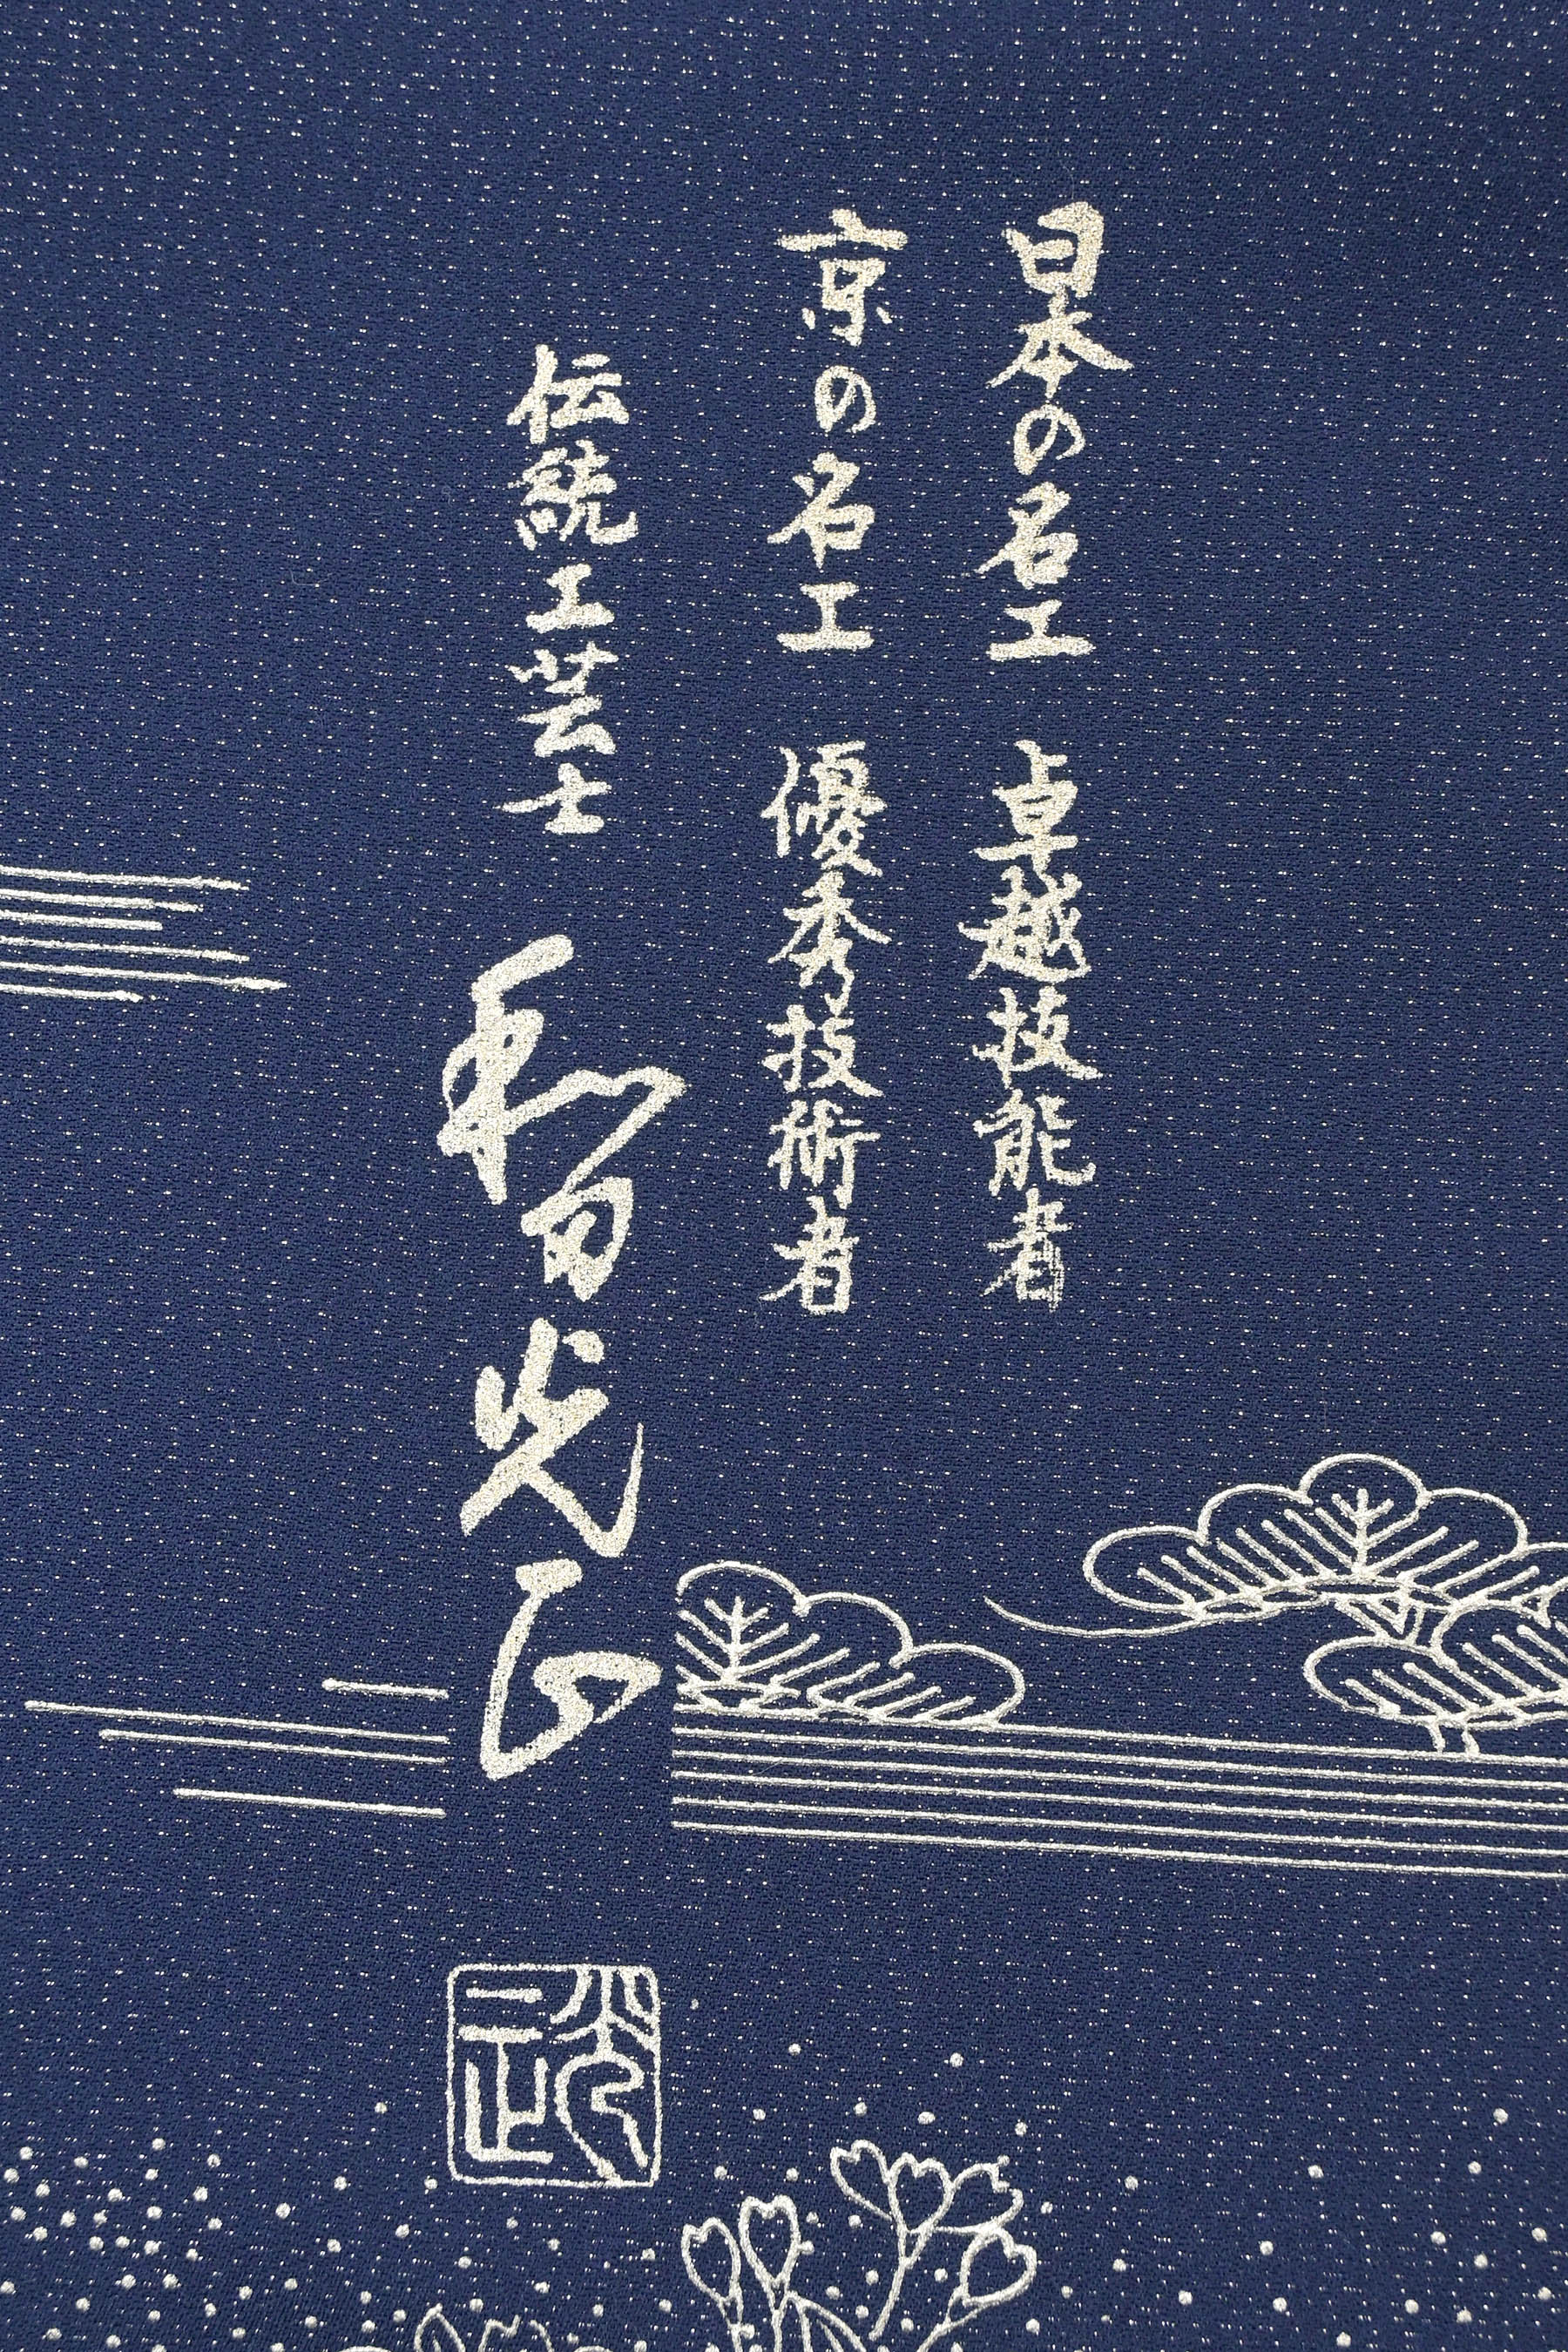 日本の名工　卓越技能者
京の名工　優秀技術者
伝統工芸士　和田光正
光正